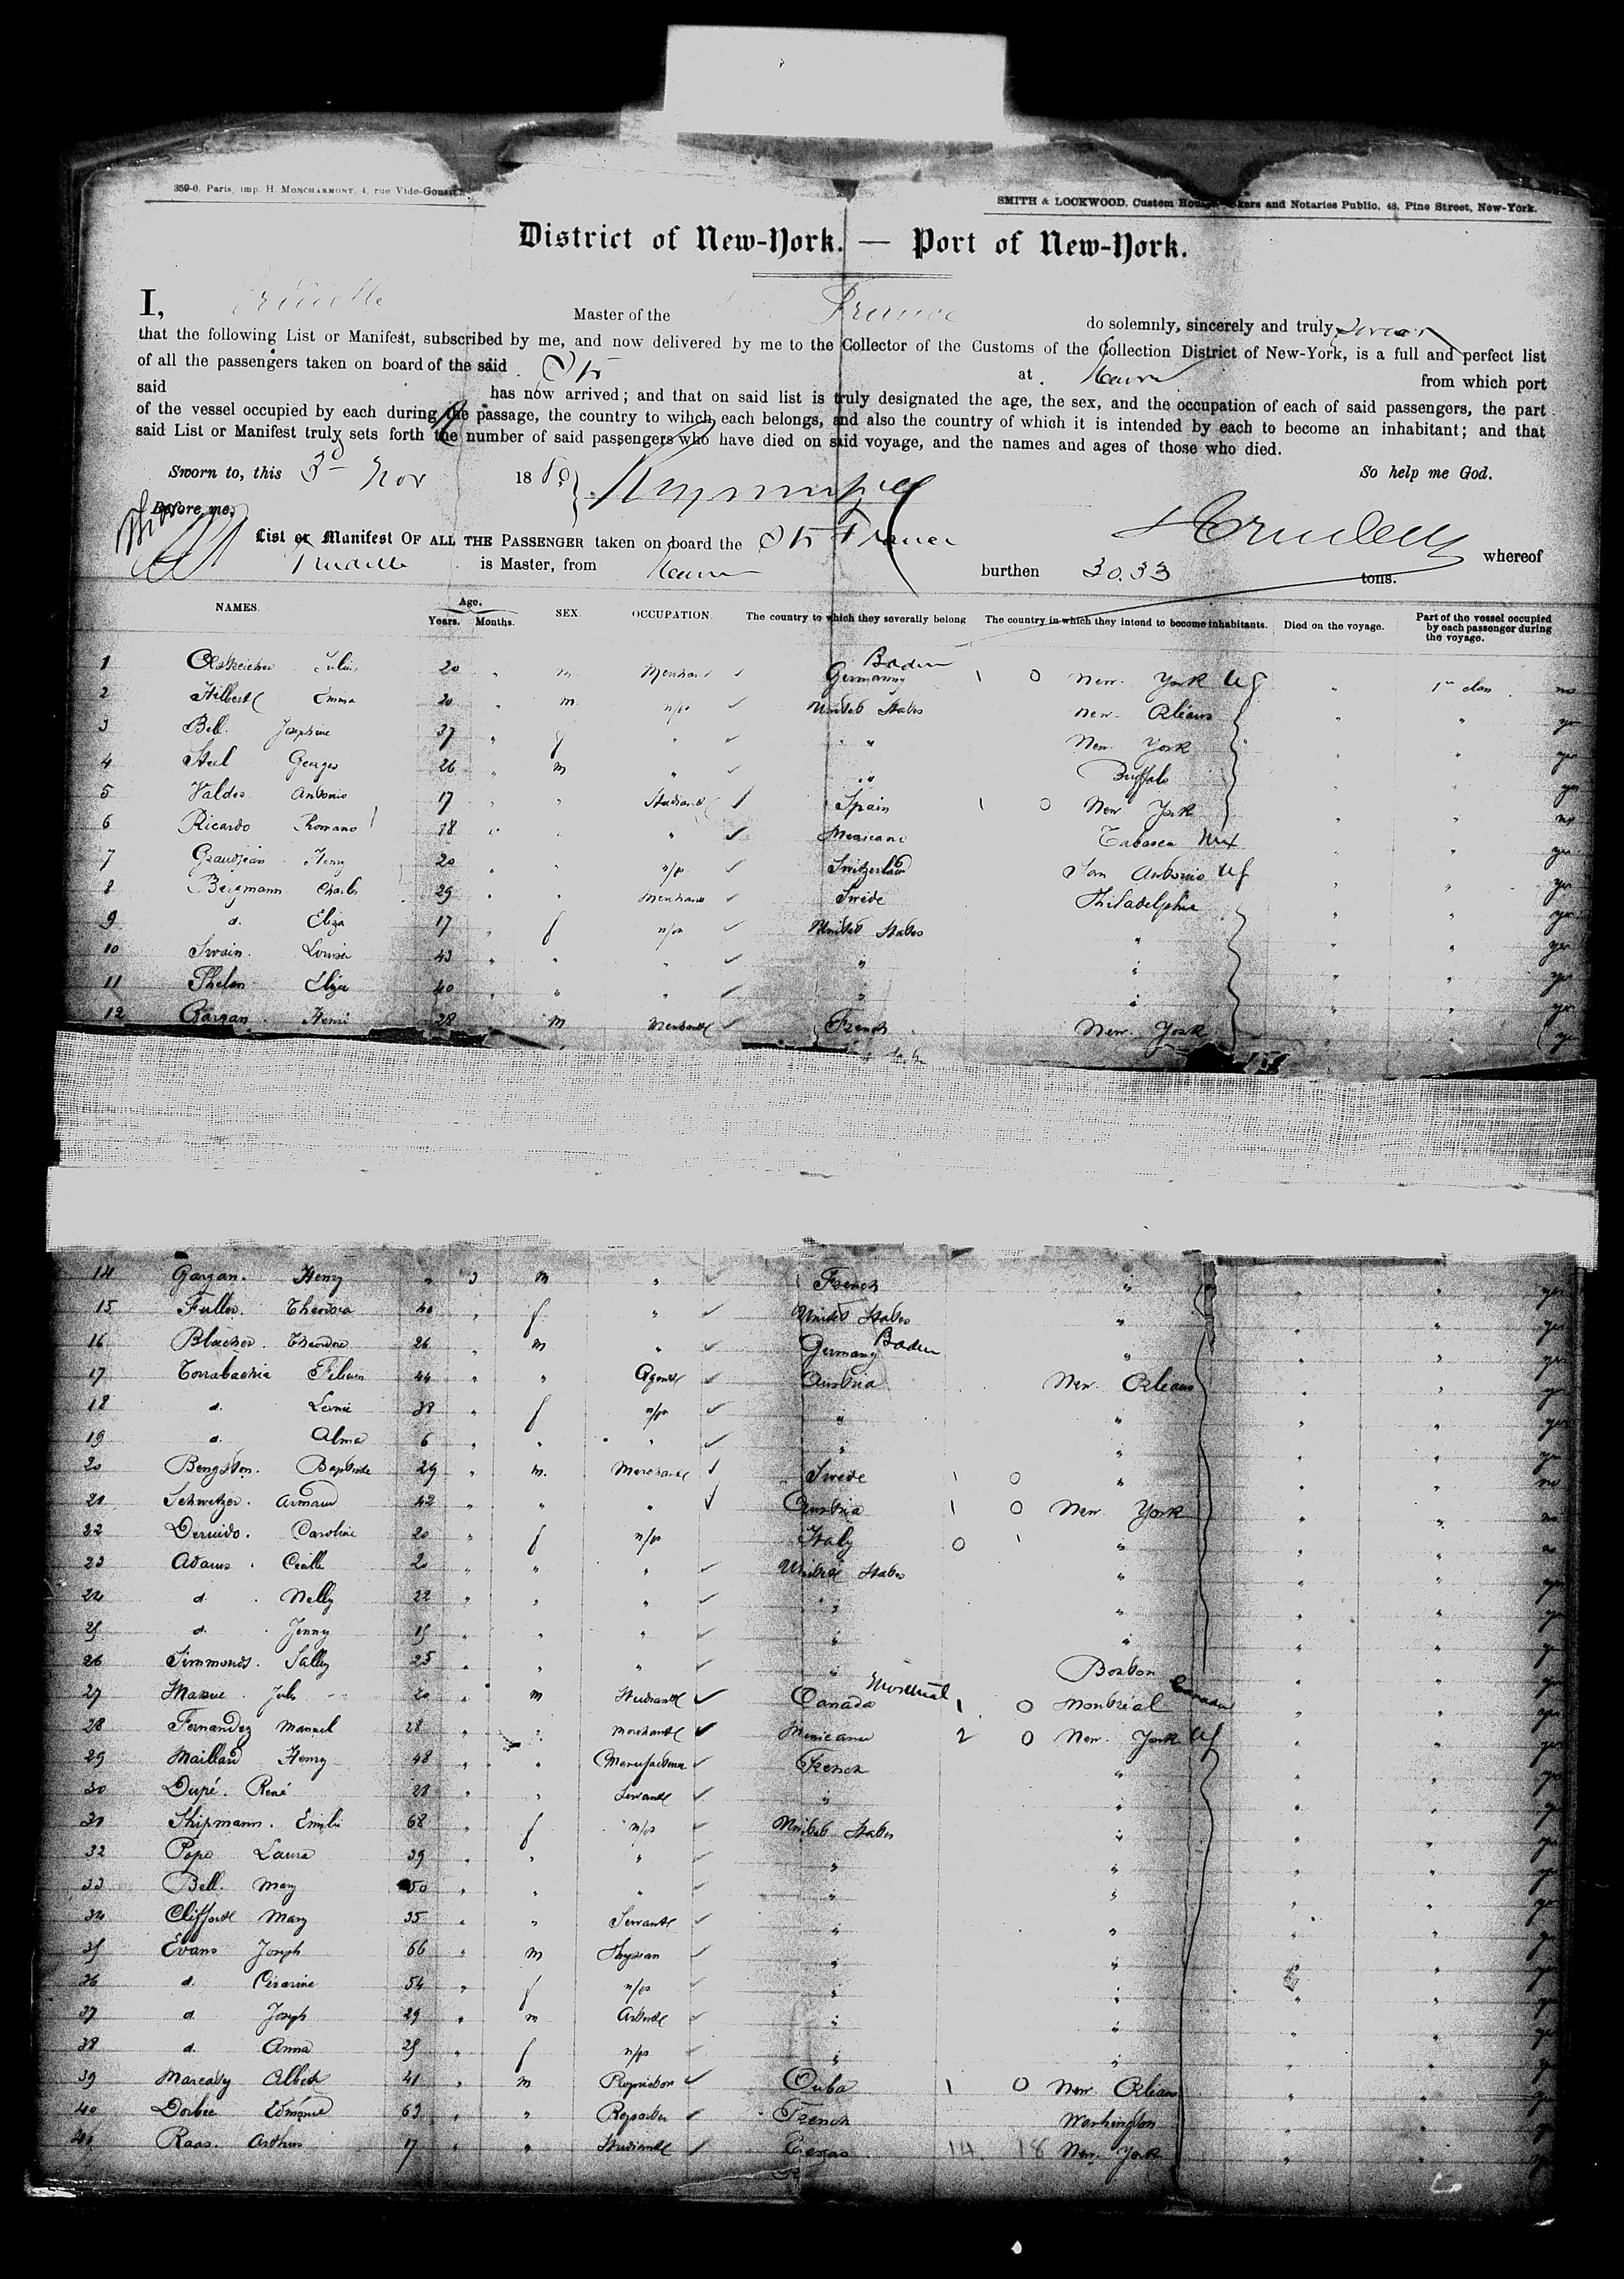 359-0, Paris, imp. H. MONCHARMONT, 4, rue Vide-Gousset.
SMITH & LOCKWOOD, Custom House Brokers and Notaries Public, 48, Pine Street, New-York.
District of New-York. — Port of New-York.
I, Trudelle Master of the France do solemnly, sincerely and truly swear
that the following List or Manifest, subscribed by me, and now delivered by me to the Collector of the Customs of the Collection District of New-York, is a full and perfect list
of all the passengers taken on board of the said Str at Havre from which port
said has now arrived; and that on said list is truly designated the age, the sex, and the occupation of each of said passengers, the part
of the vessel occupied by each during the passage, the country to wihch each belongs, and also the country of which it is intended by each to become an inhabitant; and that
said List or Manifest truly sets forth the number of said passengers who have died on said voyage, and the names and ages of those who died.
Sworn to, this 3d Nov 188 So help me God.
Before me,
List or Manifest OF ALL THE PASSENGER taken on board the Str France whereof
Trudelle is Master, from Havre burthen 30.33 tons.
NAMES. Age. Years. Months. SEX. OCCUPATION. The country to which they severally belong The country in which they intend to become inhabitants. Died on the voyage. Part of the vessel occupied by each passenger during the voyage.
1 Julius 20 " m Merchant Germany Baden 1 0 New York US " 1st class no
2 Emma 20 " m n/pn United States New Orleans " " yes
3 Bell Josephine 37 " f " " New York " " yes
4 Georges 26 " m " " Buffalo " " yes
5 Valdes Antonio 17 " " Studiant Spain 1 0 New York " " no
6 Ricardo Romano 18 " " " Mexicano Tabasco Mex " " yes
7 Grandjean Henry 20 " " n/pn Switzerland San Antonio US " " yes
8 Bergmann Charles 29 " " Merchant Swede Philadelphia " " yes
9 d. Eliza 17 " f n/pn United States " " " yes
10 Swain Louisa 43 " " " " " " " yes
11 Phelan Eliza 40 " " " " " " " yes
12 Gargan Henri 28 " m Merchant French New York " " yes
14 Gargan. Henry " 3 m " French " " " yes
15 Fuller. Theresa 40 " f " United States " " " yes
16 Blucher. Theodore 26 " m " Germany Baden " " " yes
17 44 " " Agent Austria New Orleans " " yes
18 d. 38 " f n/pn " " " " yes
19 d. Alma 6 " " " " " " " yes
20 Bengston. Baptiste 29 " m. Merchant Swede 1 0 " " " no
21 Schwetzer. Armand 42 " " " Austria 1 0 New York " " no
22 Caroline 20 " f n/pn Italy 0 1 " " " no
23 Adams. Cecille 20 " " " United States " " " yes
24 d. Nelly 22 " " " " " " " yes
25 d. Jenny 15 " " " " " " " yes
26 Simmonds. Sally 25 " " " " Boston " " yes
27 Masue. Jules 20 " m Studiant Canada Montreal 1 0 Montreal Canada " " yes
28 Fernandez Manuel 28 " " merchant Mexicano 2 0 New York US " " yes
29 Maillard Henry 48 " " Manufacturer French " " " yes
30 Dupé. René 28 " " Servant " " " " yes
31 Shipmann. Emilie 68 " f n/pn United States " " " yes
32 Pope Laura 39 " " " " " " " yes
33 Bell. Mary 50 " " " " " " " yes
34 Clifford Mary 35 " " Servant " " " " yes
35 Evans Joseph 66 " m Physian " " " " yes
36 d. Césarine 54 " f n/pn " " " " yes
37 d Joseph 29 " m Artist " " " " yes
38 d. Anna 25 " f n/pn " " " " yes
39 Albert 41 " m Cuba 1 0 New Orleans " " yes
40 Edmond 63 " " French Washington " " yes
Raas. Arthur 17 " " Studiant Texas 14 18 New York " " yes